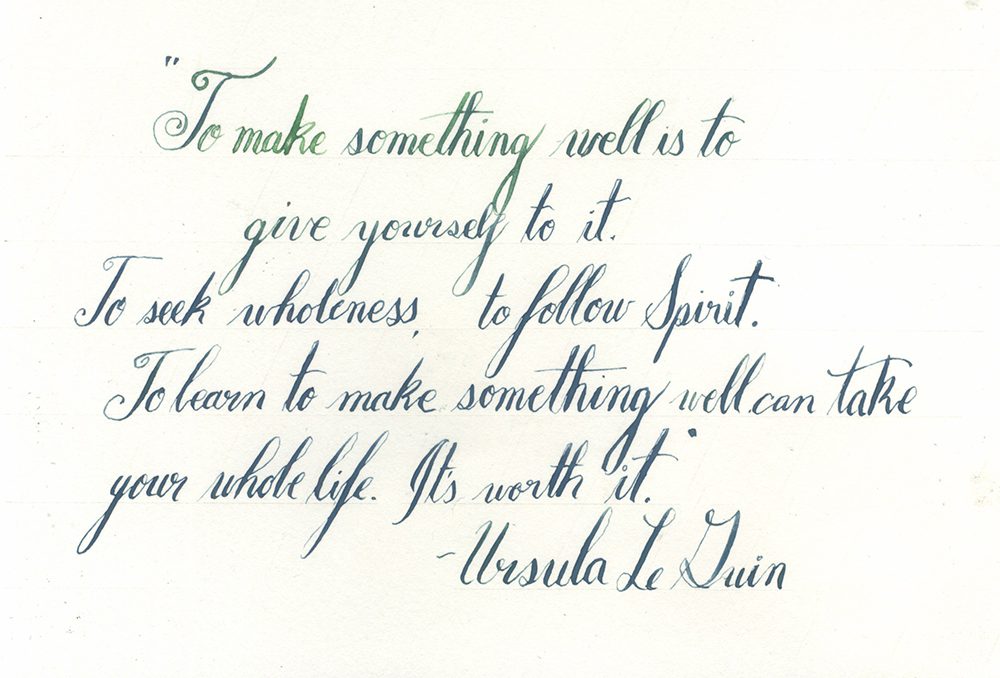 "To make something well is to
give yourself to it.
To seek wholeness, to follow Spirit.
To learn to make something well can take
your whole life. It's worth it."
-Ursula Le Guin